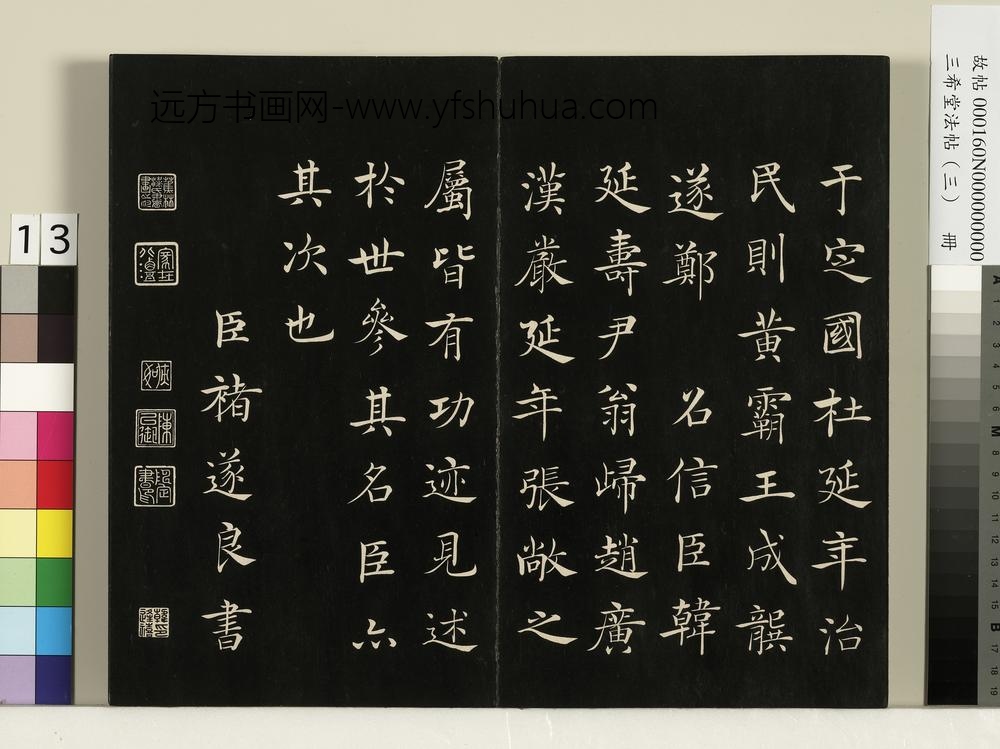 于定國杜延年治
民則黃霸王成龔
遂鄭 名信臣韓
延壽尹翁歸趙廣
漢嚴延年張敞之
屬皆有功迹見述
於世參其名臣亦
其次也
臣褚遂良書
远方书画网-www.yfshuhua.com
故帖 000160N000000000
三希堂法帖(三) 冊
13
A 1 2 3 4 5 6 M 8 9 10 11 12 13 14 15 B 17 18 19